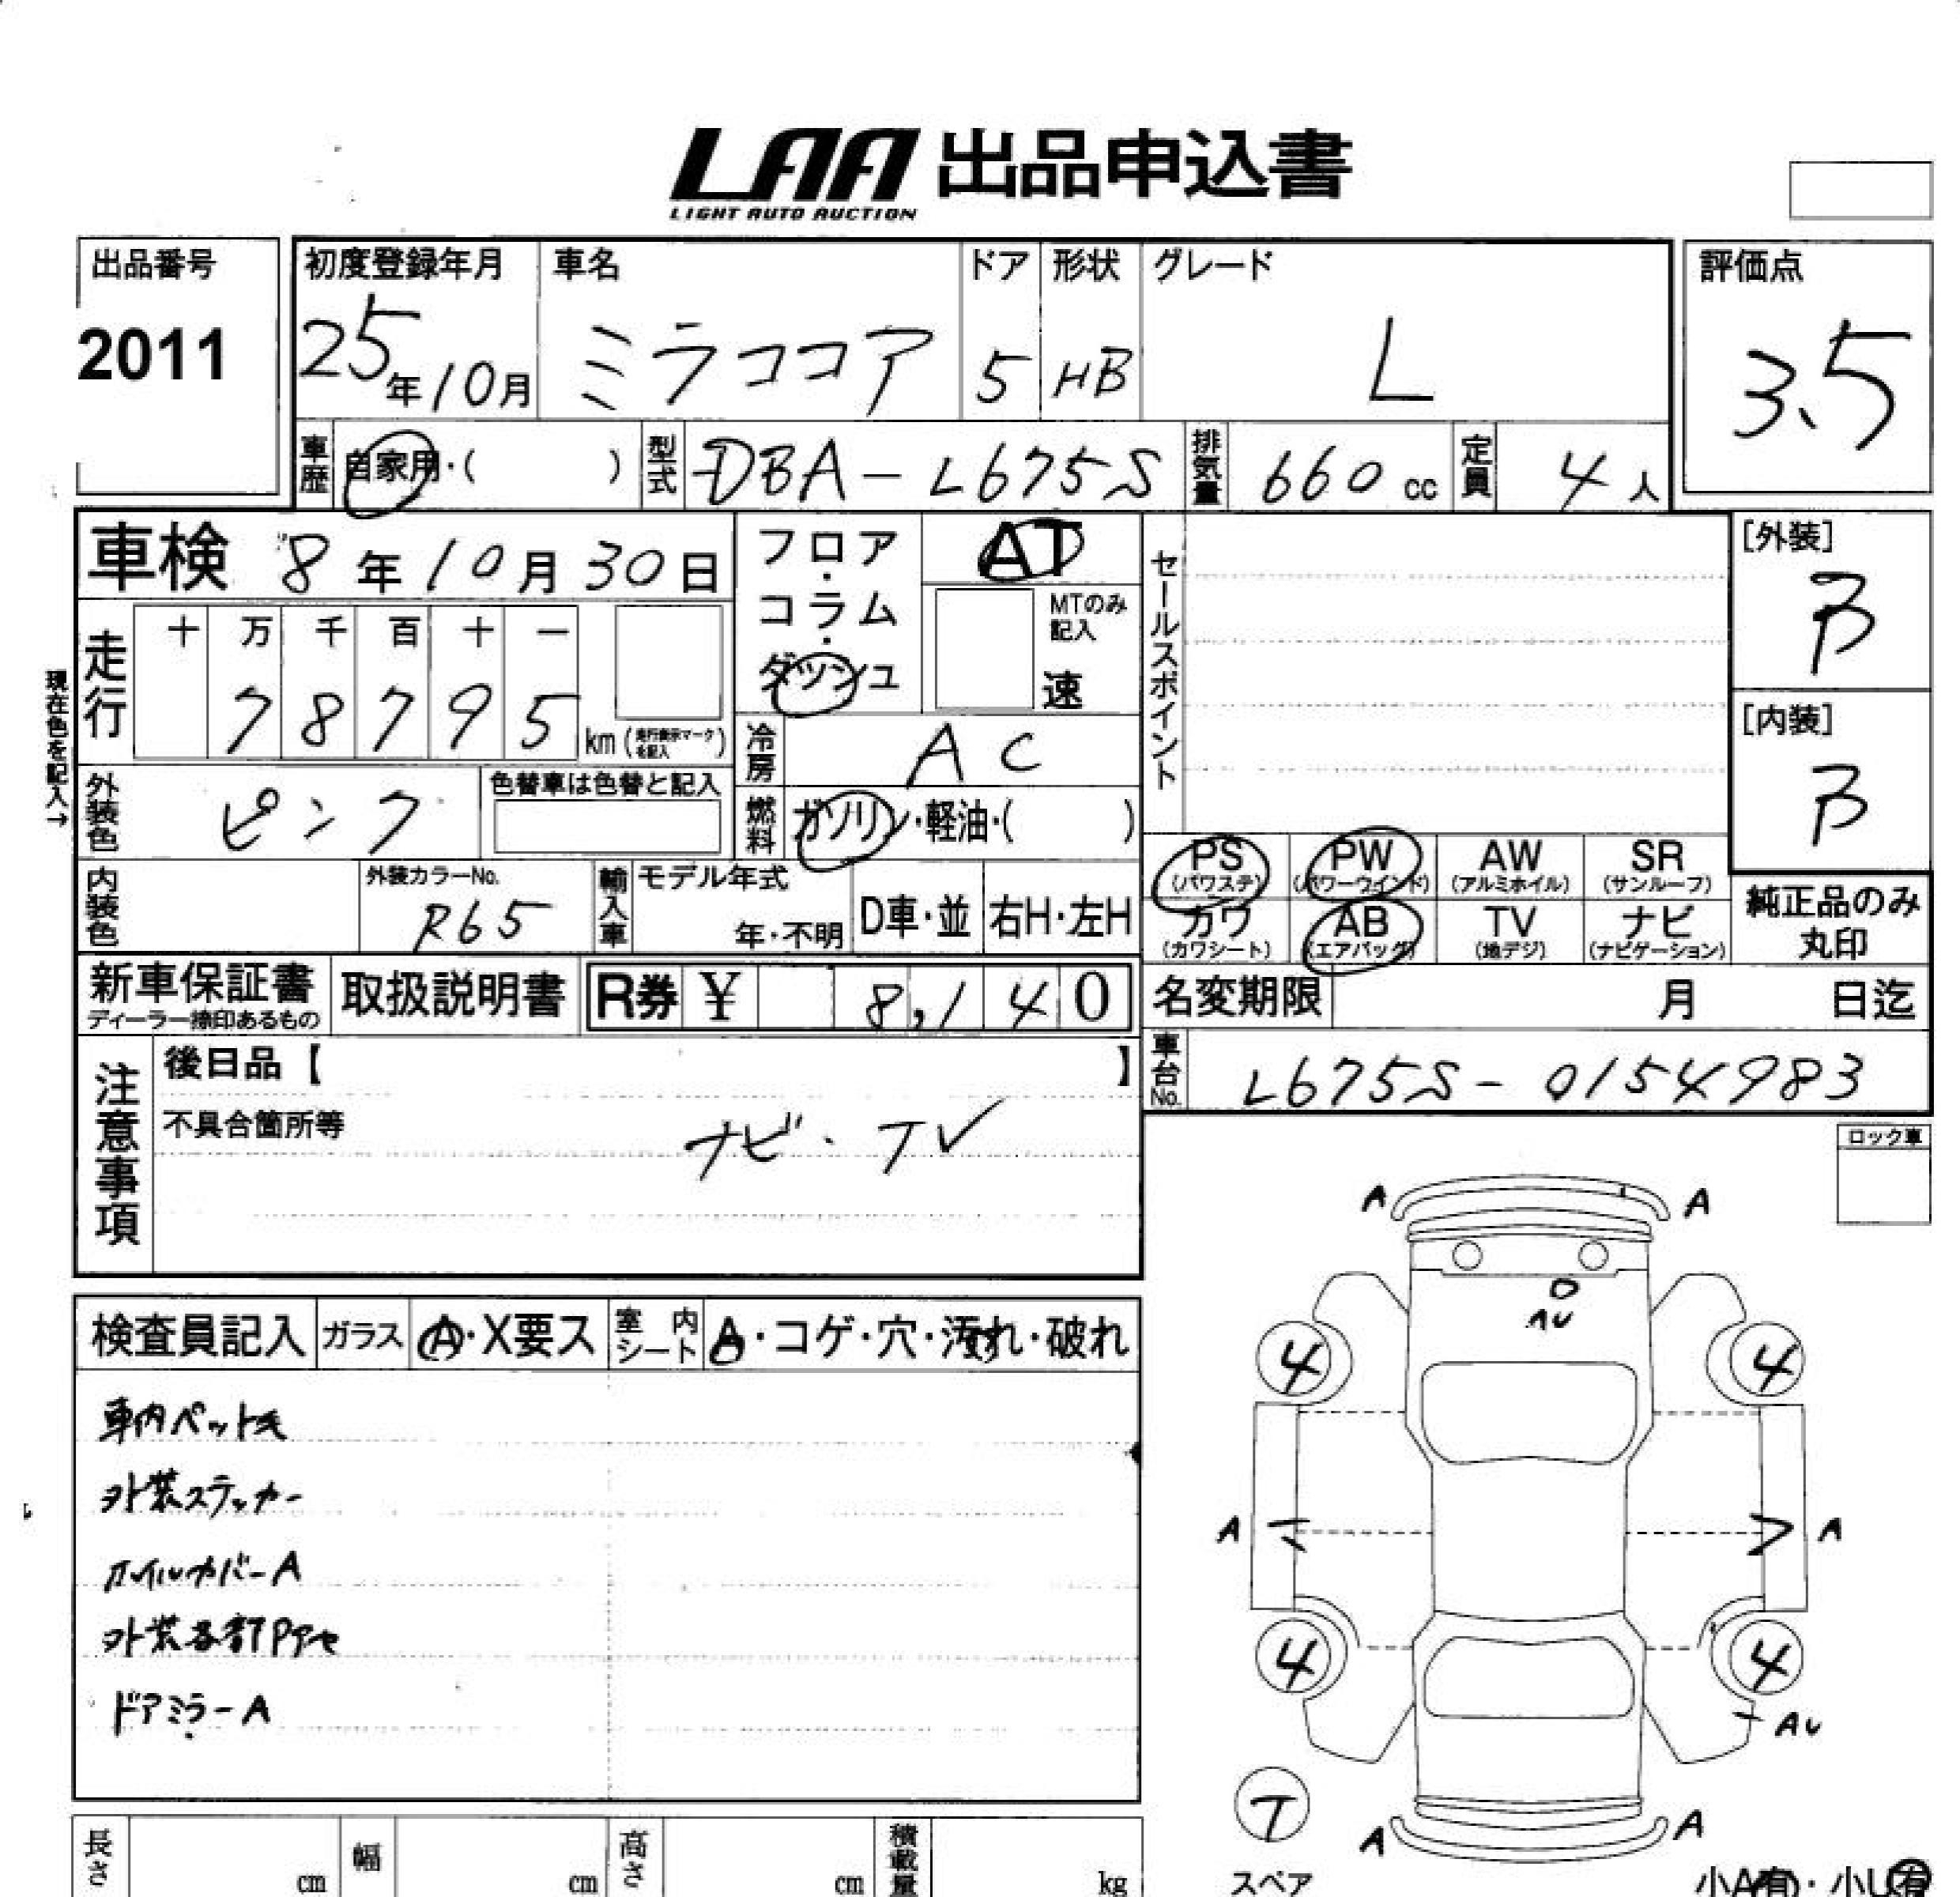 LAA 出品申込書
LIGHT AUTO AUCTION
出品番号 初度登録年月 車名 ドア 形状 グレード 評価点
2011 25年10月 ミラココア 5 HB L 3.5
車歴 自家用・( ) 型式 DBA-L675S 排気量 660cc 定員 4人
車検 8年10月30日 フロア・コラム・ダッシュ AT セールスポイント [外装]
B
MTのみ記入
速
現在色を記入→
走行 十 万 千 百 十 一
7 8 7 9 5 km (走行表示マークを記入)
冷房 AC [内装]
B
外装色 ピンク 色替車は色替と記入 燃料 ガソリン・軽油・( )
PS (パワステ) PW (パワーウインド) AW (アルミホイル) SR (サンルーフ)
内装色 外装カラーNo. R65 輸入車 モデル年式 年・不明 D車・並 右H・左H
カワ (カワシート) AB (エアバッグ) TV (地デジ) ナビ (ナビゲーション) 純正品のみ丸印
新車保証書 ディーラー捺印あるもの 取扱説明書 R券 ¥ 8,140 名変期限 月 日迄
注意事項 後日品【 】 車台No. L675S-0154983
不具合箇所等 ナビ・TV
ロック車
A A
検査員記入 ガラス A・X要ス 室内シート A・コゲ・穴・汚れ・破れ
AU
4 4
車内ペット毛
外装ステッカー
A A
ホイルカバーA
外装各部Pアセ
4 4
ドアミラーA
AU
T
A A
長さ cm 幅 cm 高さ cm 積載量 kg スペア 小A有・小U有